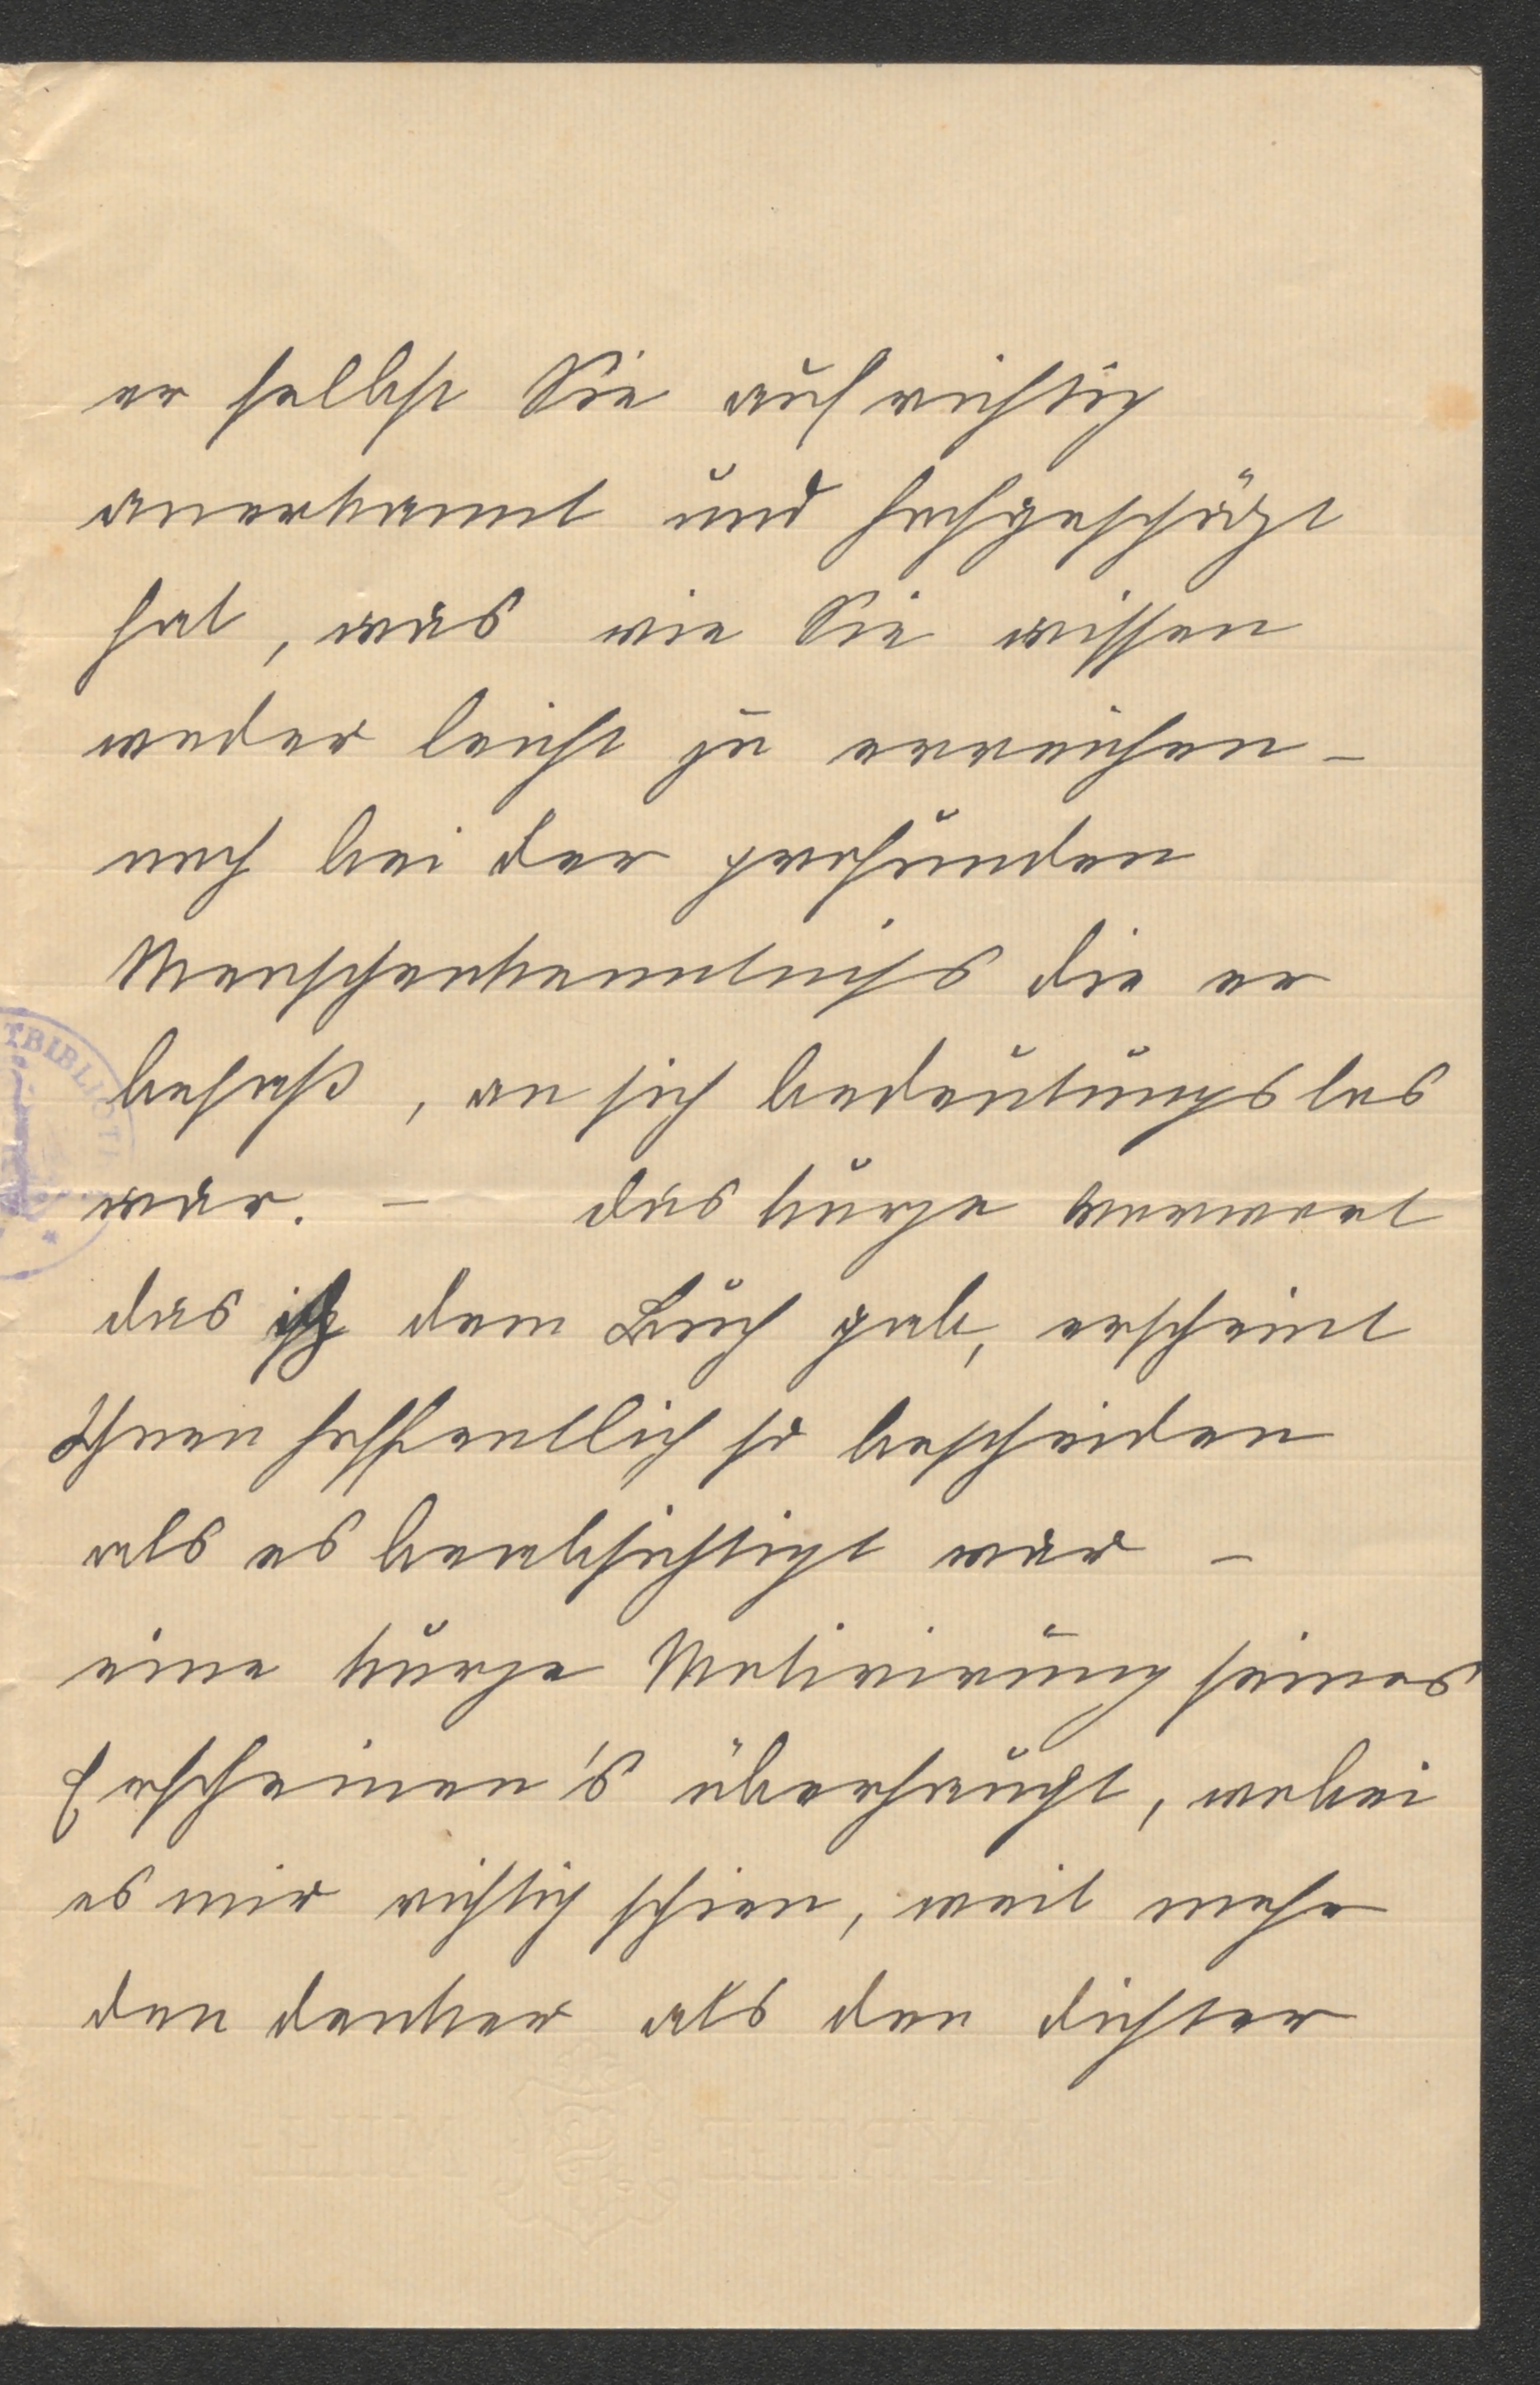 er selbst Sie aufrichtig
anerkannt und hochgeschäzt
hat, was wie Sie wissen
weder leicht zu erreichen –
noch bei der profunden
Menschenkenntniss die er
besaß, an sich bedeutungslos
war. – das kurze Vorwort
das ich dem Buch gab, erscheint
Ihnen hoffentlich so bescheiden
als es beabsichtigt war –
eine kurze Motivirung seines
Erscheinen's überhaupt, wobei
es mir richtig schien, weil mehr
den denker als den dichter
TBIBLIOT